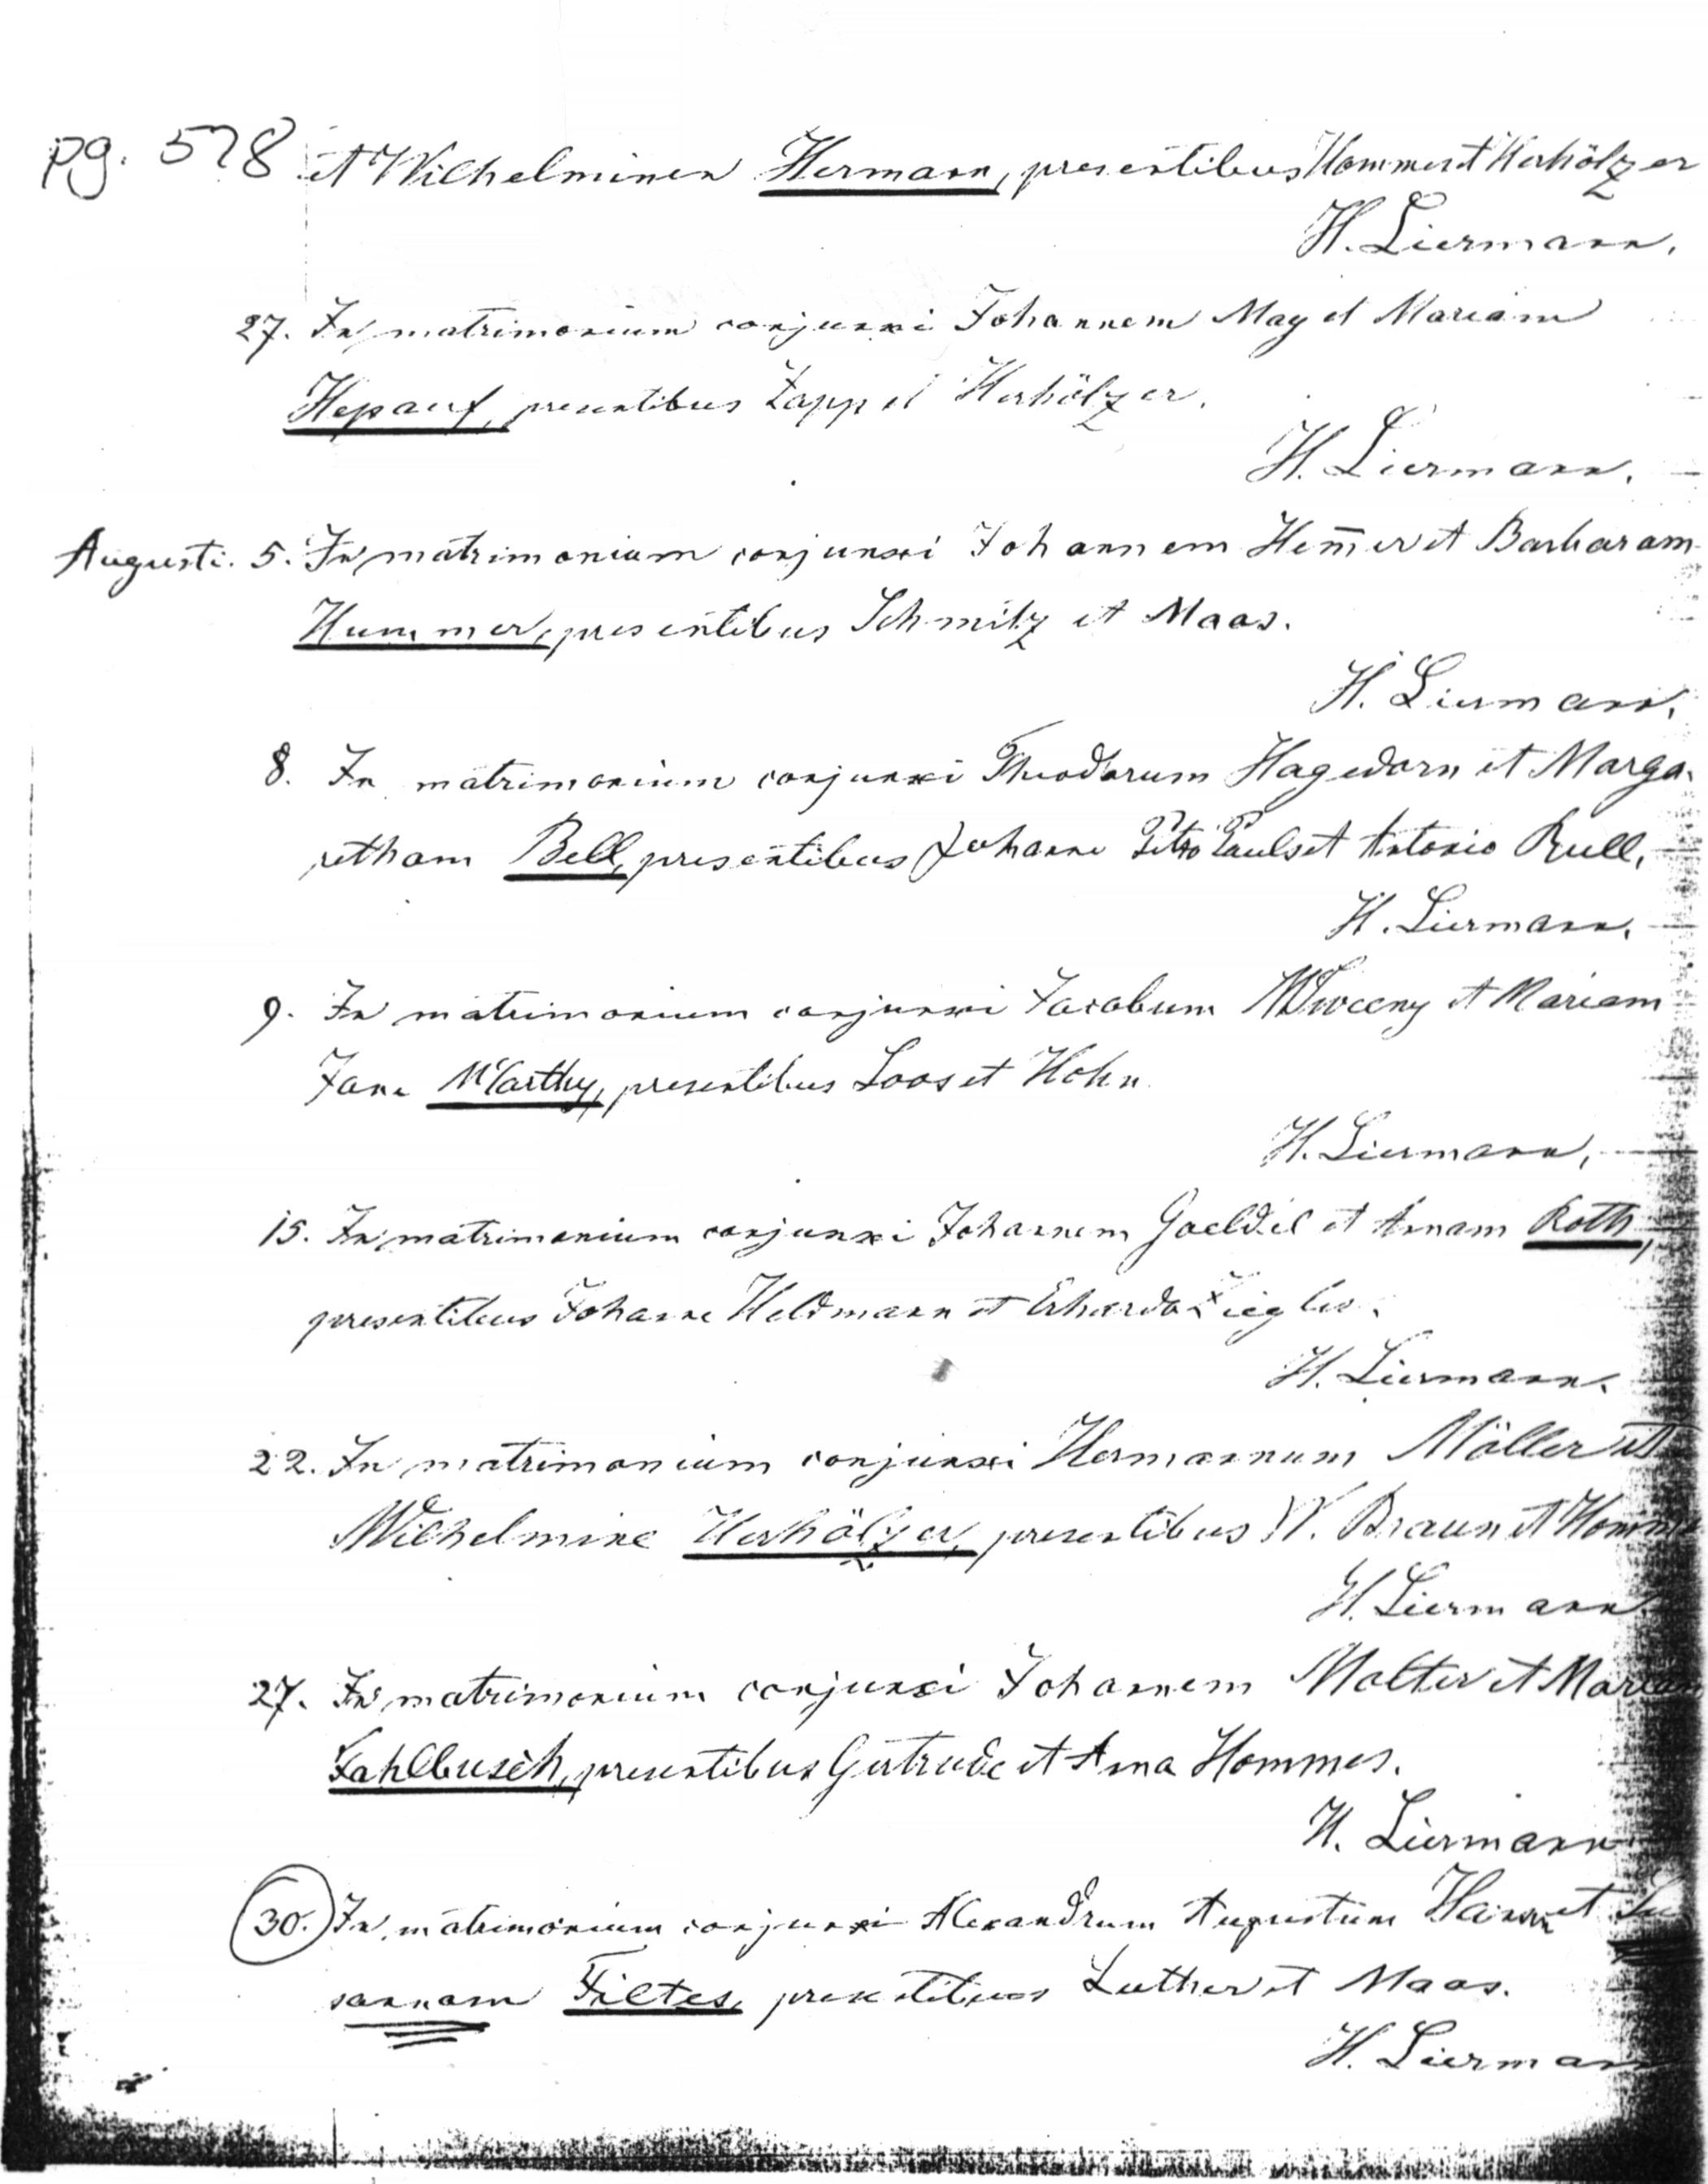 pg. 578 et Wilhelminen Hermann, presentibus Hommer et Herhölzer
H. Liermann.
27. In matrimonium conjunxi Johannem May et Mariam
Hepauf, presentibus Zapp et Herhölzer.
H. Liermann.
Augusti. 5. In matrimonium conjunxi Johannem Hem̄er et Barbaram
Hummer, presentibus Schmitz et Maas.
H. Liermann.
8. In matrimonium conjunxi Theodorum Hagedorn et Marga-
retham Bell, presentibus Johanne Petro Pauls et Antonio Rull.
H. Liermann.
9. In matrimonium conjunxi Jacobum et Mariam
Jane McCarthy, presentibus Loos et Hohn
H. Liermann.
15. In matrimonium conjunxi Johannem Goeldel et Annam Roth,
presentibus Johanne Heldmann et Erhardo Ziegler.
H. Liermann.
22. In matrimonium conjunxi Hermannum Möller et
Wilhelmine Herhölzer, presentibus W. Braun et
H. Liermann
27. In matrimonium conjunxi Johannem Molter et Mariam
Fahlbusch, presentibus Gertrude et Anna Hommes.
H. Liermann
30. In matrimonium conjunxi Alexandrum Augustum et Su
sannam Filtes, presentibus Luther et Maas.
H. Liermann